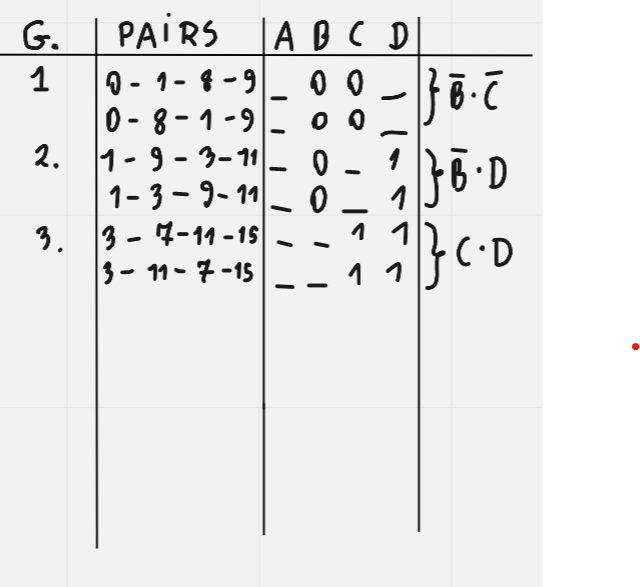 G. PAIRS A B C D
1 0-1-8-9 _ 0 0 _ } B̅·C̅
0-8-1-9 _ 0 0 _
2. 1-9-3-11 _ 0 _ 1 } B̅·D
1-3-9-11 _ 0 _ 1
3. 3-7-11-15 _ _ 1 1 } C·D
3-11-7-15 _ _ 1 1